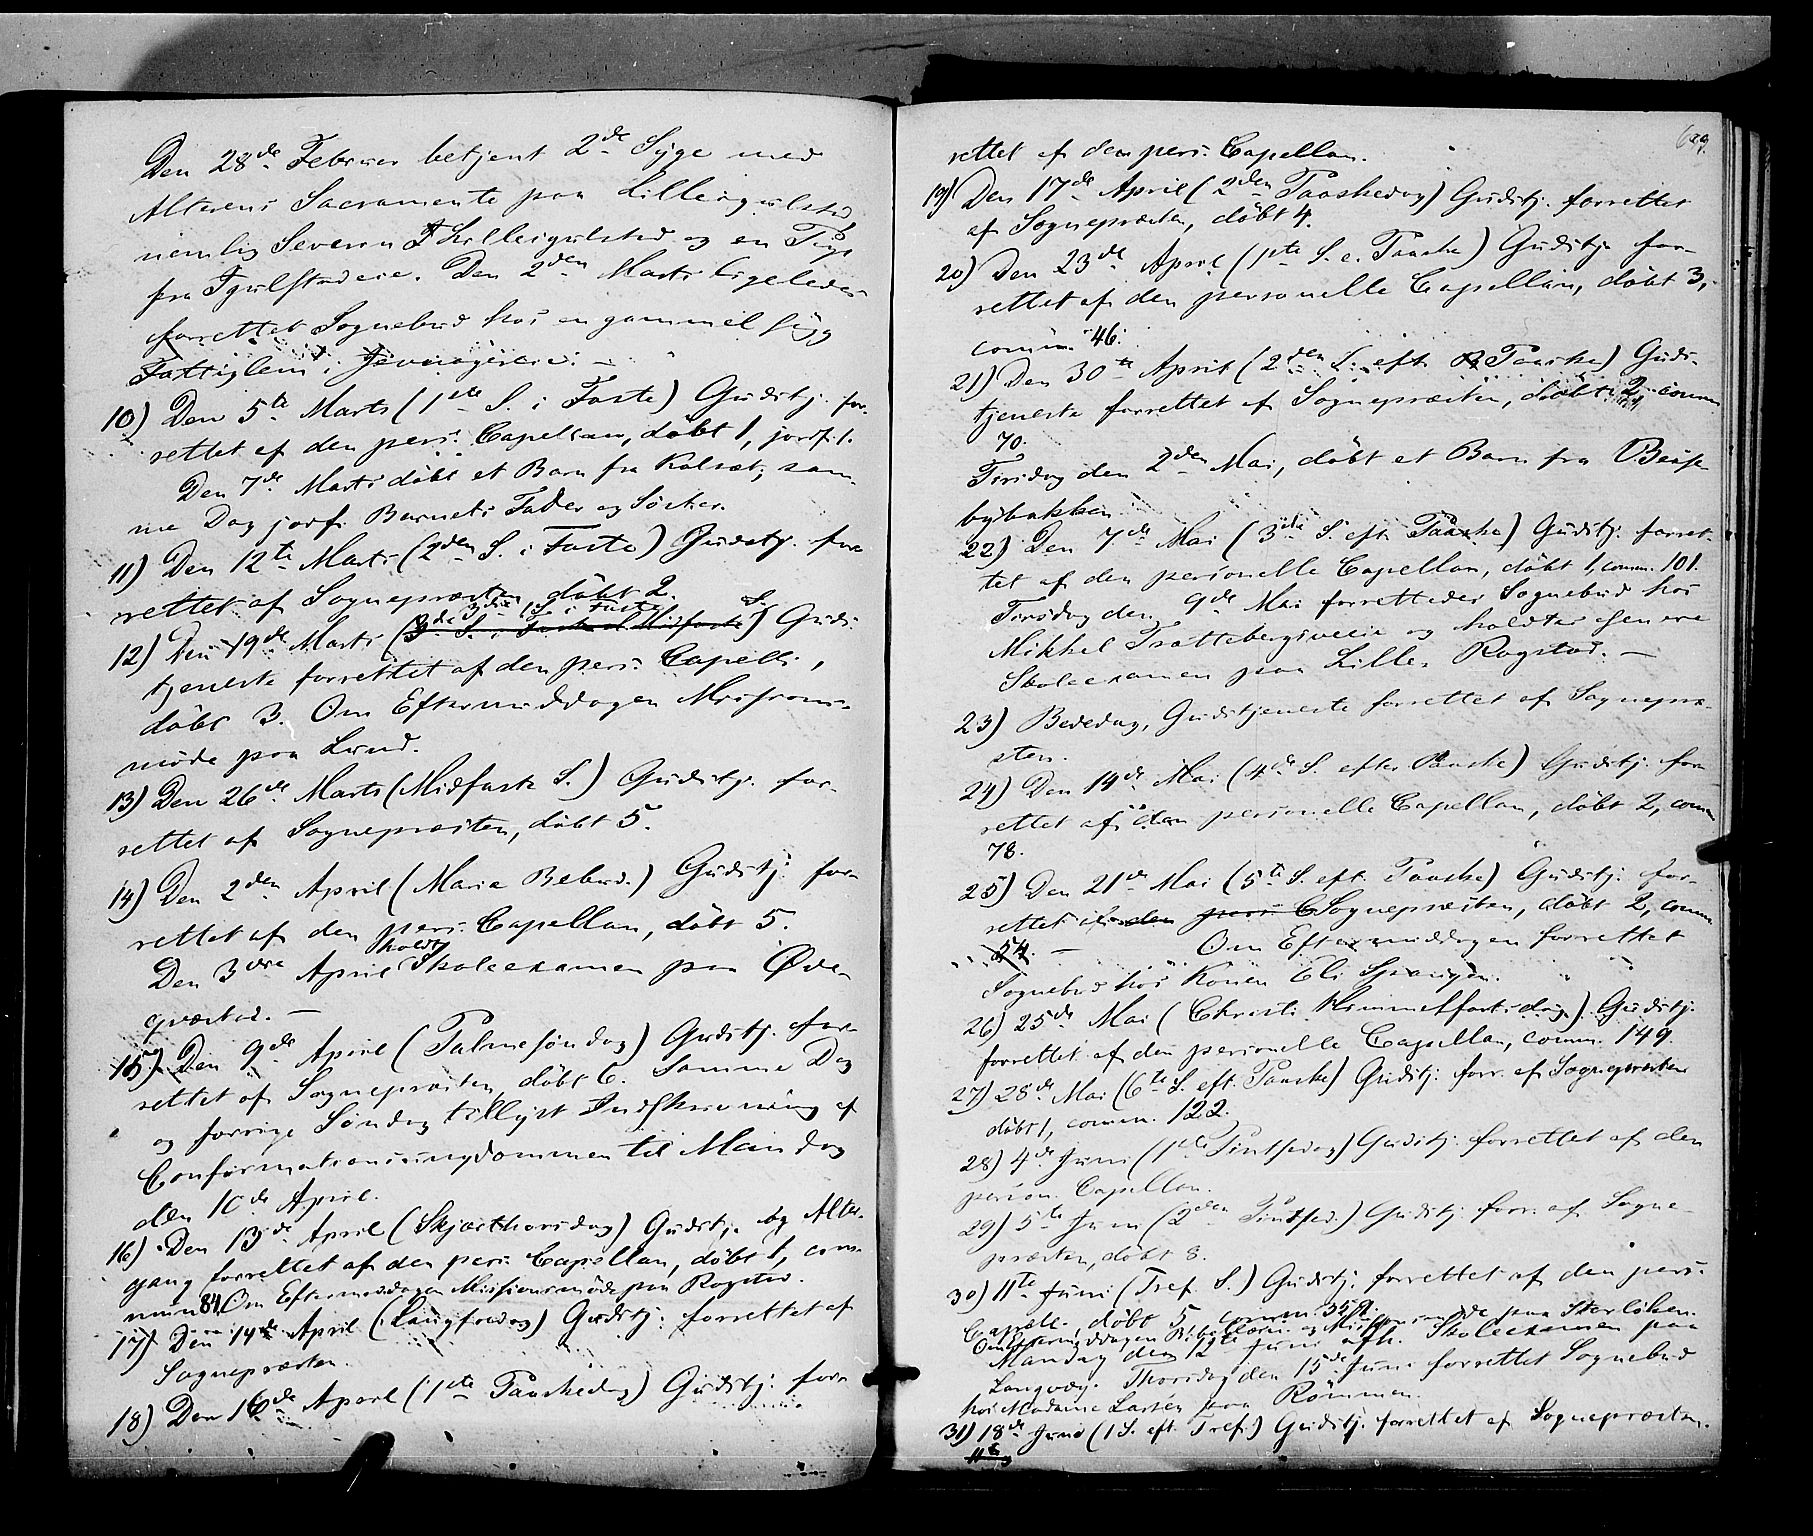 Den 28de Februar betjent 2de Syge med
Alterens Sacramente paa Lilleigulstad
nemlig Severin Lilleigulstad og en Pige
fra Igulstadeie. Den 2den Marts ligeledes
forrettet Sognebud hos en gammel syg
Fattiglem i
10) Den 5te Marts (1ste S. i Faste) Gudstj. for-
rettet af den pers. Capellan, döbt 1, jordf. 1.
Den 7de Marts döbt et Barn fra Kalsæt, sam-
me Dag jordf. Barnets Fader og Söster.
11) Den 12te Marts (2den S. i Faste) Gudstj. for-
rettet af Sognepræsten, döbt 2.
12) Den 19de Marts (3die S. i Faste) Guds-
tjeneste forrettet af den pers. Capell.,
döbt 3. Om Eftermiddagen Missions-
möde paa Lund.
13) Den 26de Marts (Midfaste S.) Gudstj. for-
rettet af Sognepræsten, döbt 5.
14) Den 2den April (Maria Bebud.) Gudstj. for-
rettet af den pers. Capellan, döbt 5.
Den 3die April holdt Skoleexamen paa Øde-
qværtad. —
15) Den 9de April (Palmesöndag) Gudstj. for-
rettet af Sognepræsten, döbt 6. Samme Dag
og forrige Söndag tillyst Indskrivning af
Confirmationsungdommen til Mandag
den 10de April.
16) Den 13de April (Skjærthorsdag) Gudstj. og Alter-
gang forrettet af den pers. Capellan, döbt 1, com-
mun. 84. Om Eftermiddagen Missionsmöde paa Rogstad.
17) Den 14de April (Langfredag) Gudstj. forrettet af
Sognepræsten.
18) Den 16de April (1ste Paaskedag) Gudstj. for-
rettet af den pers. Capellan.
19) Den 17de April (2den Paaskedag) Gudstj. forrettet
af Sognepræsten, döbt 4.
20) Den 23de April (1ste S. e. Paaske) Gudstj. for-
rettet af den personelle Capellan, döbt 3,
comm. 46.
21) Den 30te April (2den S. eft. Paaske) Guds-
tjeneste forrettet af Sognepræsten, döbt 2, comm.
70.
Tirsdag den 2den Mai, döbt et Barn fra
bybakken.
22) Den 7de Mai (3die S. eft. Paaske) Gudstj. forret-
tet af den personelle Capellan, döbt 1, comm. 101.
Tirsdag den 9de Mai forrettedes Sognebud hos
Mikkel og holdtes
Skoleexamen paa Lille Rogstad. —
23) Bededag, Gudstjeneste forrettet af Sognepræ-
sten.
24) Den 14de Mai (4de S. efter Paaske) Gudstj. for-
rettet af den personelle Capellan, döbt 2, comm.
78.
25) Den 21de Mai (5te S. eft. Paaske) Gudstj. for-
rettet af den pers. C Sognepræsten, döbt 2, comm.
54. — Om Eftermiddagen forrettet
Sognebud hos Konen Eli
26) 25de Mai (Christi Himmelfartsdag) Gudstj.
forrettet af den personelle Capellan, comm. 149.
27) 28de Mai (6te S. eft. Paaske) Gudstj. forr. af Sognepræsten
döbt 1, comm. 122.
28) 4de Juni (1ste Pintsedag) Gudstj. forrettet af den
person. Capellan.
29) 5te Juni (2den Pintsed.) Gudstj. forr. af Sogne-
præsten, döbt 8.
30) 11te Juni (Tref. S.) Gudstj. forrettet af den pers.
Capell., döbt 5, comm.
Om Eftermiddagen Bibellæsn. og Missionsmöde paa
Mandag den 12te Juni Skoleexamen paa
Langvæg. Thorsdag den 15de Juni forrettet Sognebud
hos Madame Larsen paa Römmen.
31) 18de Juni (1 S. eft. Tref.) Gudstj. forrettet af Sognepræsten.